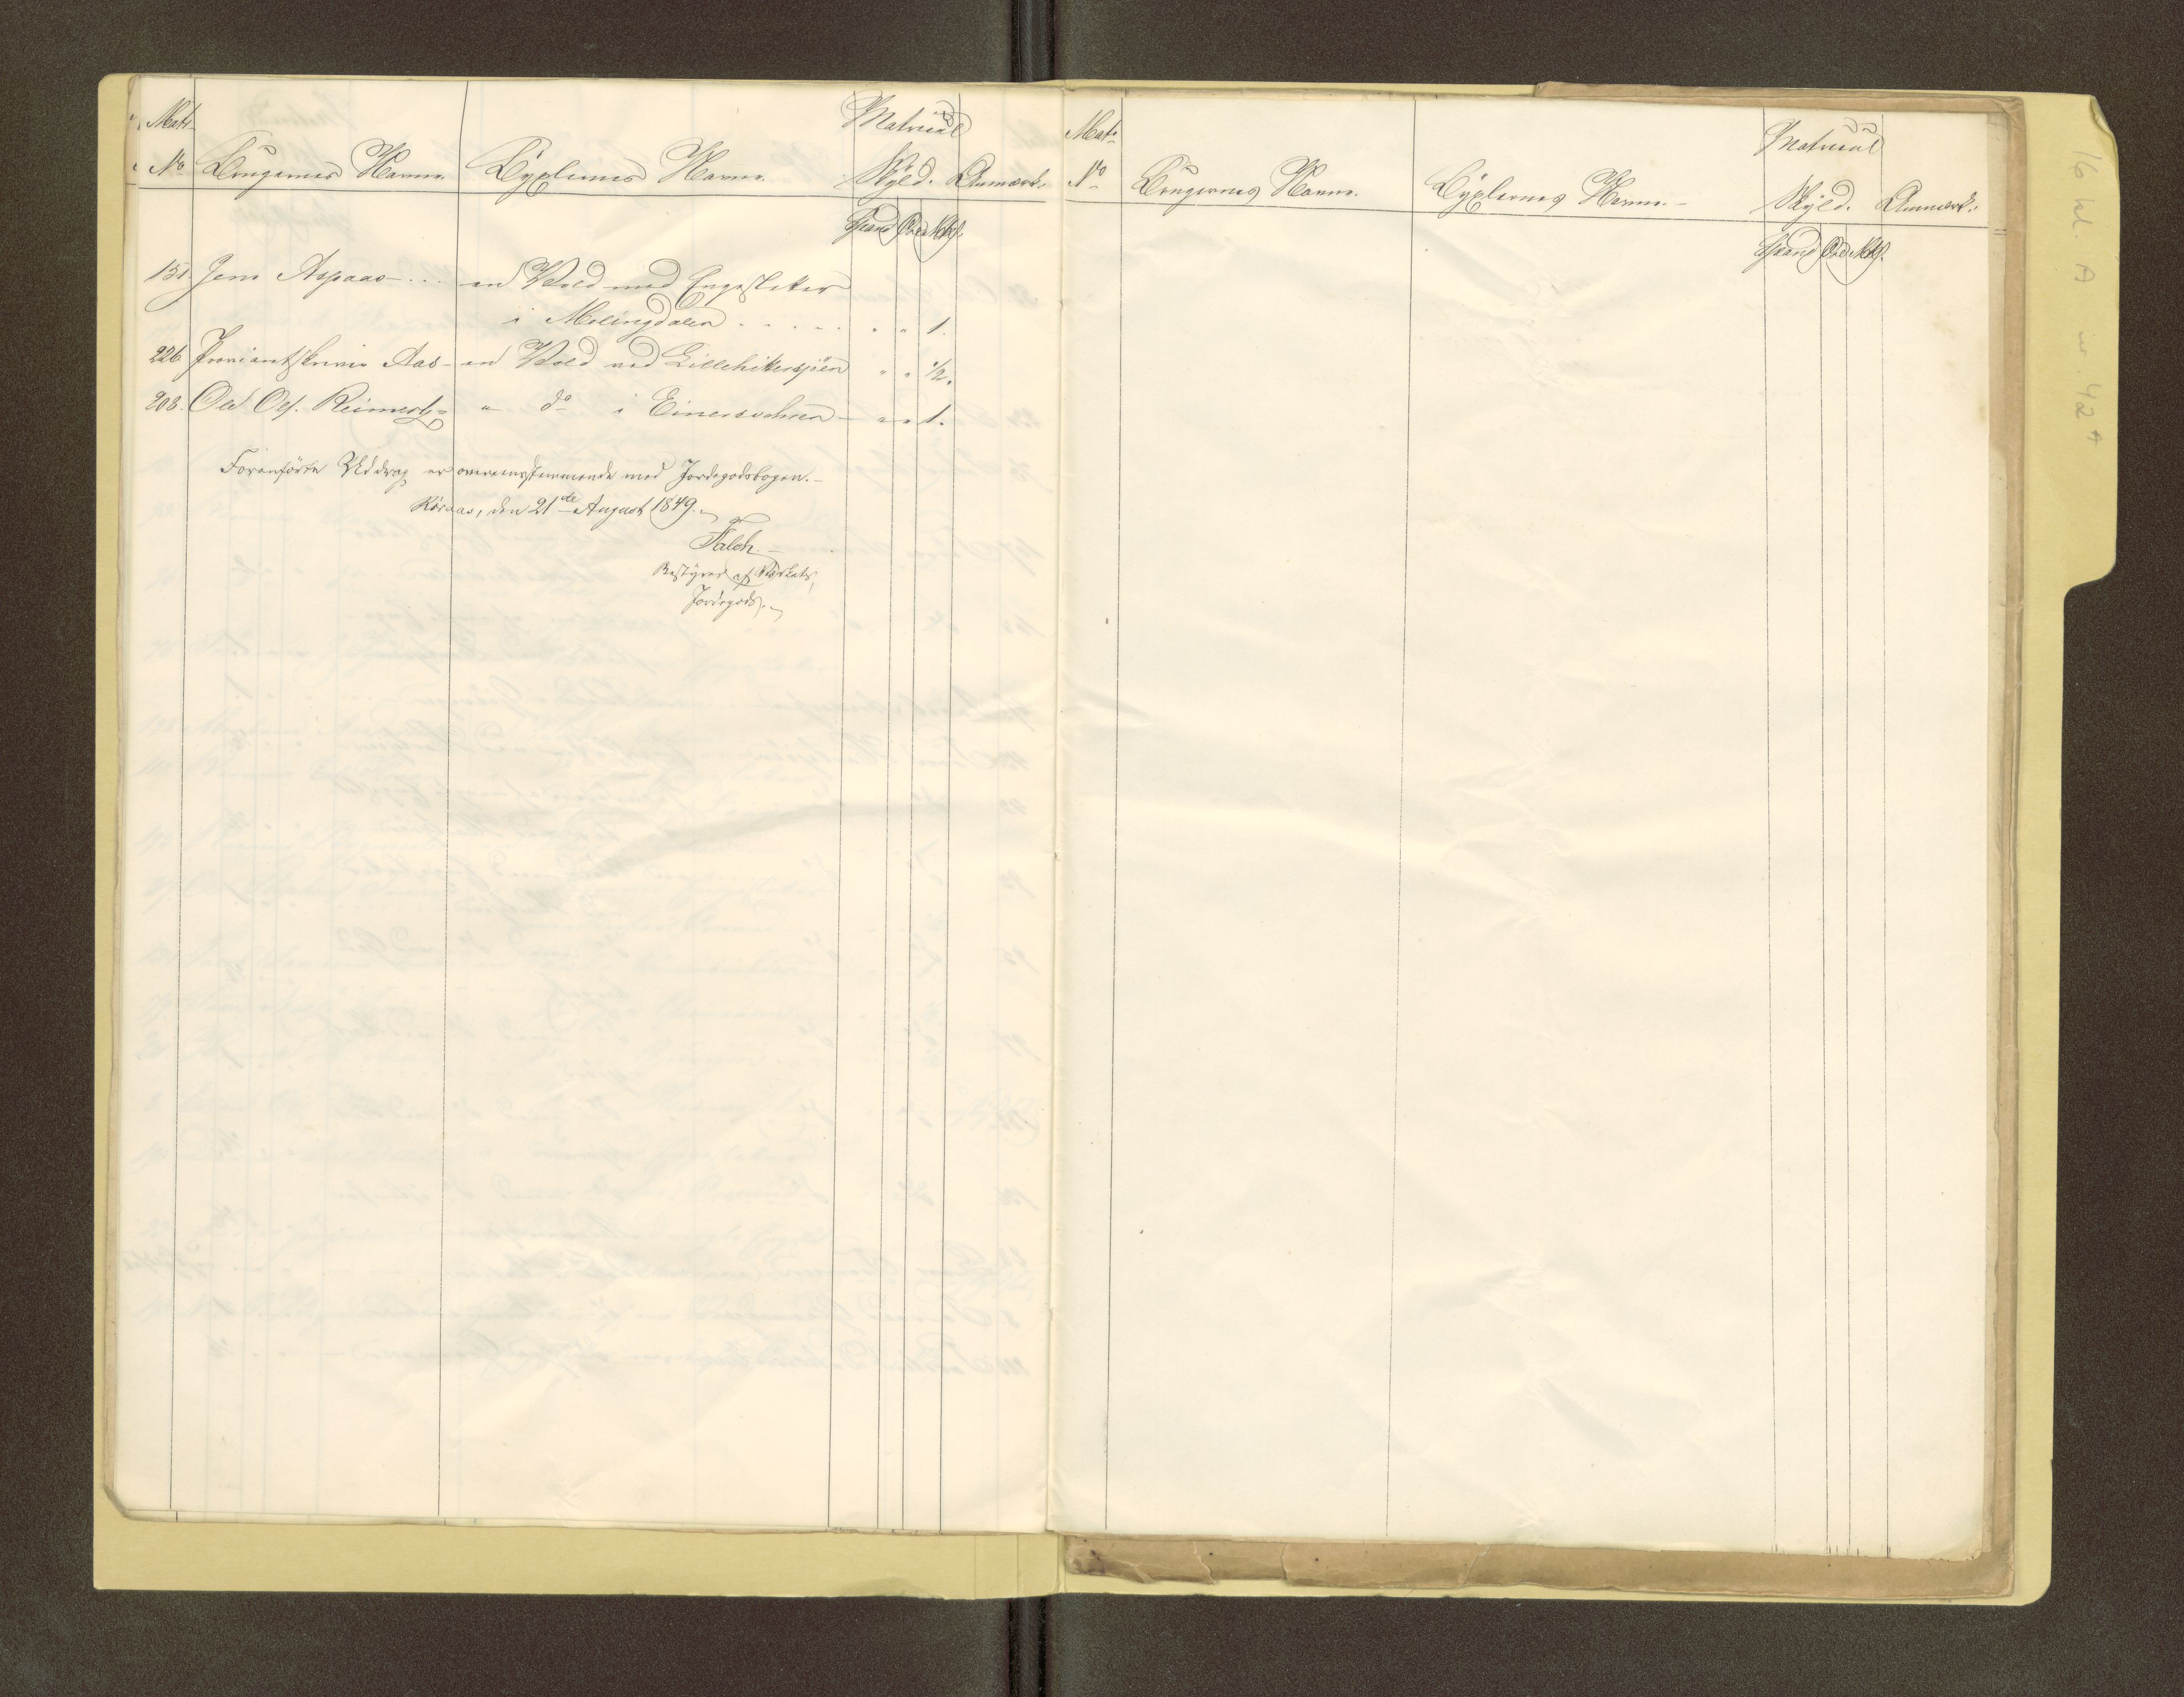 Mat:
No Brugernes Navne. Byxlernes Navne. Matricul Skyld. Anmærk:
Spand Øre Mkl.
151. Jens Aspaas ... en Vold med Engesletter
i Molingdalen . . . . . " " 1.
226 Proviantskriver Aas - en Vold ved Lillehittersjöen " " 1/2.
208. Ole Ols. Reimers " do i Einersvolden " " 1.
Foranførte Uddrag er overensstemmende med Jordegodsbogen.-
Röraas, den 21de August 1849.
Falch.
Bestyrer af Værkets
Jordegods.
Mat:
No Brugernes Navne. Byxlernes Navne.- Matricul Skyld. Anmærk:
Spand Øre Mkl.
16 hl. A nr. 42 4